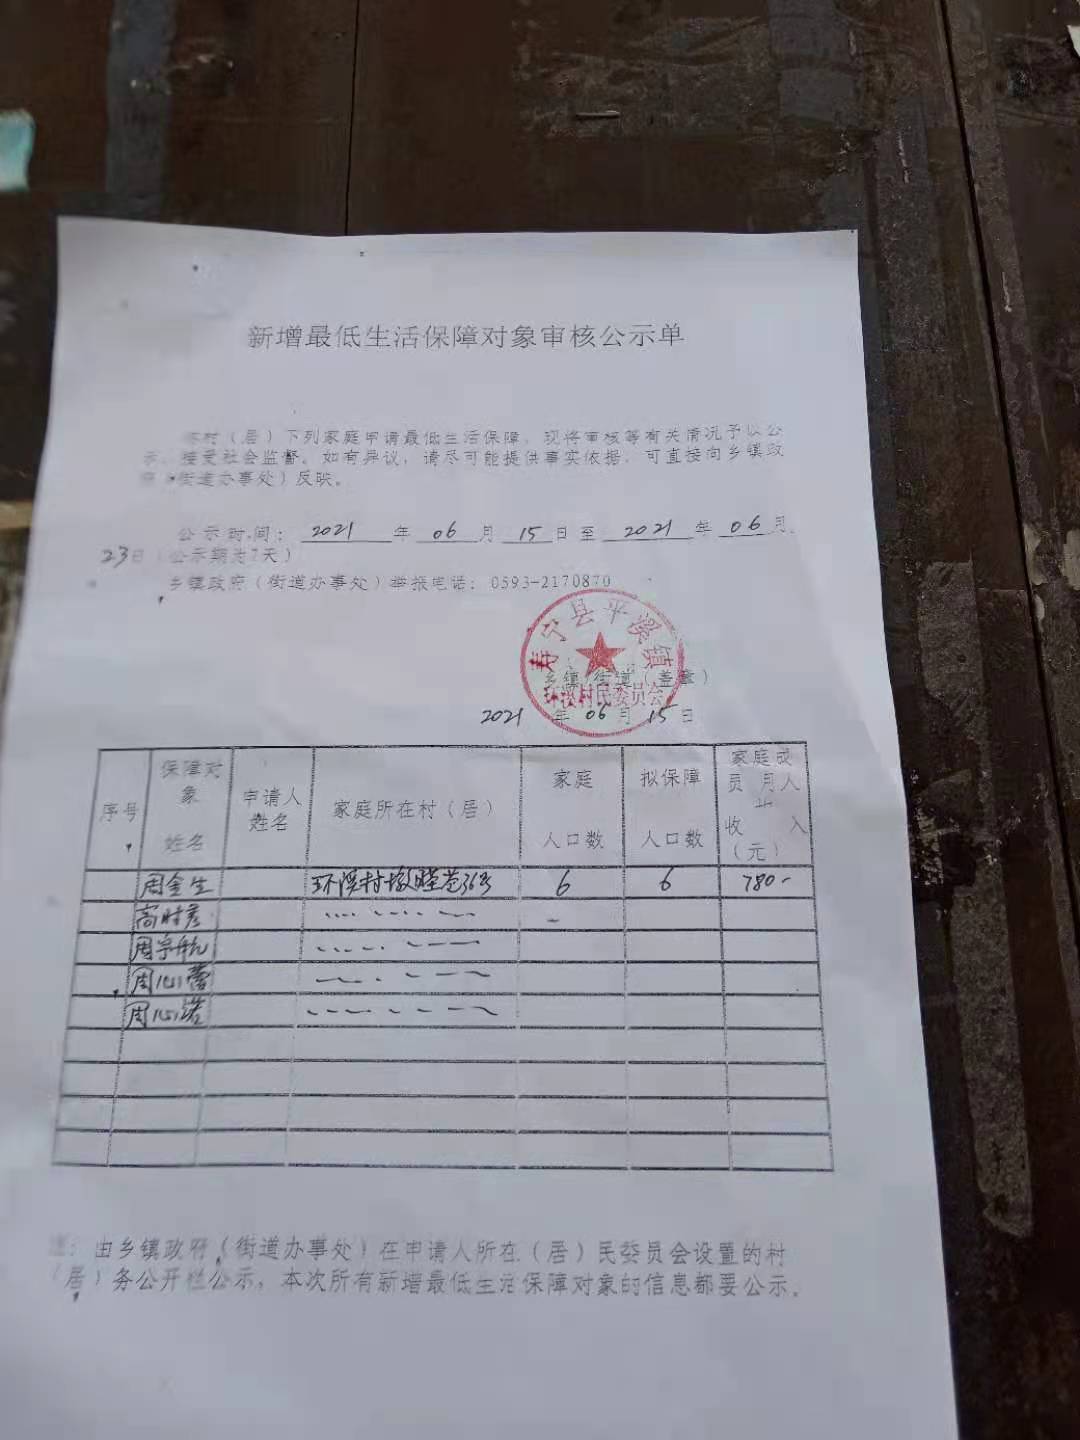 新增最低生活保障对象审核公示单
村（居）下列家庭申请最低生活保障，现将审核等有关情况予以公
示，接受社会监督。如有异议，请尽可能提供事实依据，可直接向乡镇政
街道办事处）反映。
公示时间：2021年06月15日至2021年06月
23日（公示期为7天）
乡镇政府（街道办事处）举报电话：0593-2170870
寿宁县平溪镇
环溪村民委员会
乡镇 街道（盖章）
2021年06月15日
序号 保障对象姓名 申请人姓名 家庭所在村（居） 家庭人口数 拟保障人口数 家庭成员月人均收入（元）
周金生 环溪村 36号 6 6 780-
高时
周宗航
周心蕾
周心诺
注：由乡镇政府（街道办事处）在申请人所在（居）民委员会设置的村
（居）务公开栏公示，本次所有新增最低生活保障对象的信息都要公示。